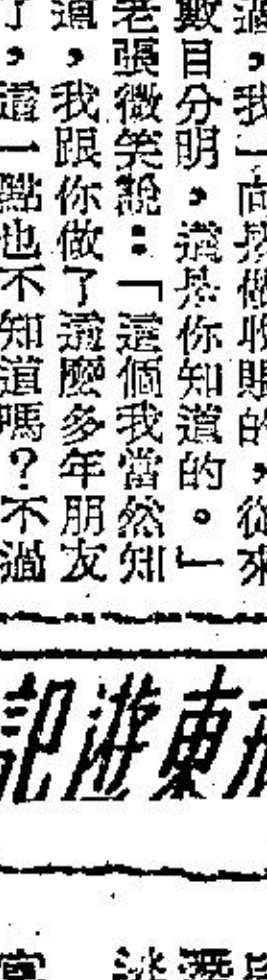 過，我一向是做收賬的，從來
數目分明，這是你知道的。」
老張微笑說：「這個我當然知
道，我跟你做了這麼多年朋友
了，這一點也不知道嗎？不過
東遊記